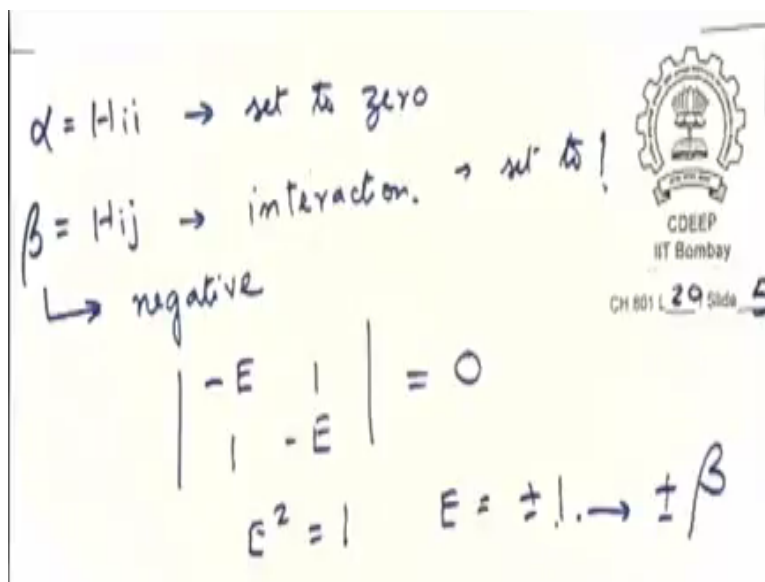 α = Hii → set to zero
β = Hij → interaction. → set to 1
↳ negative
CDEEP
IIT Bombay
CH 601 L 29 Slide 5
| -E 1 | = 0
| 1 -E |
E² = 1 E = ± 1. → ± β